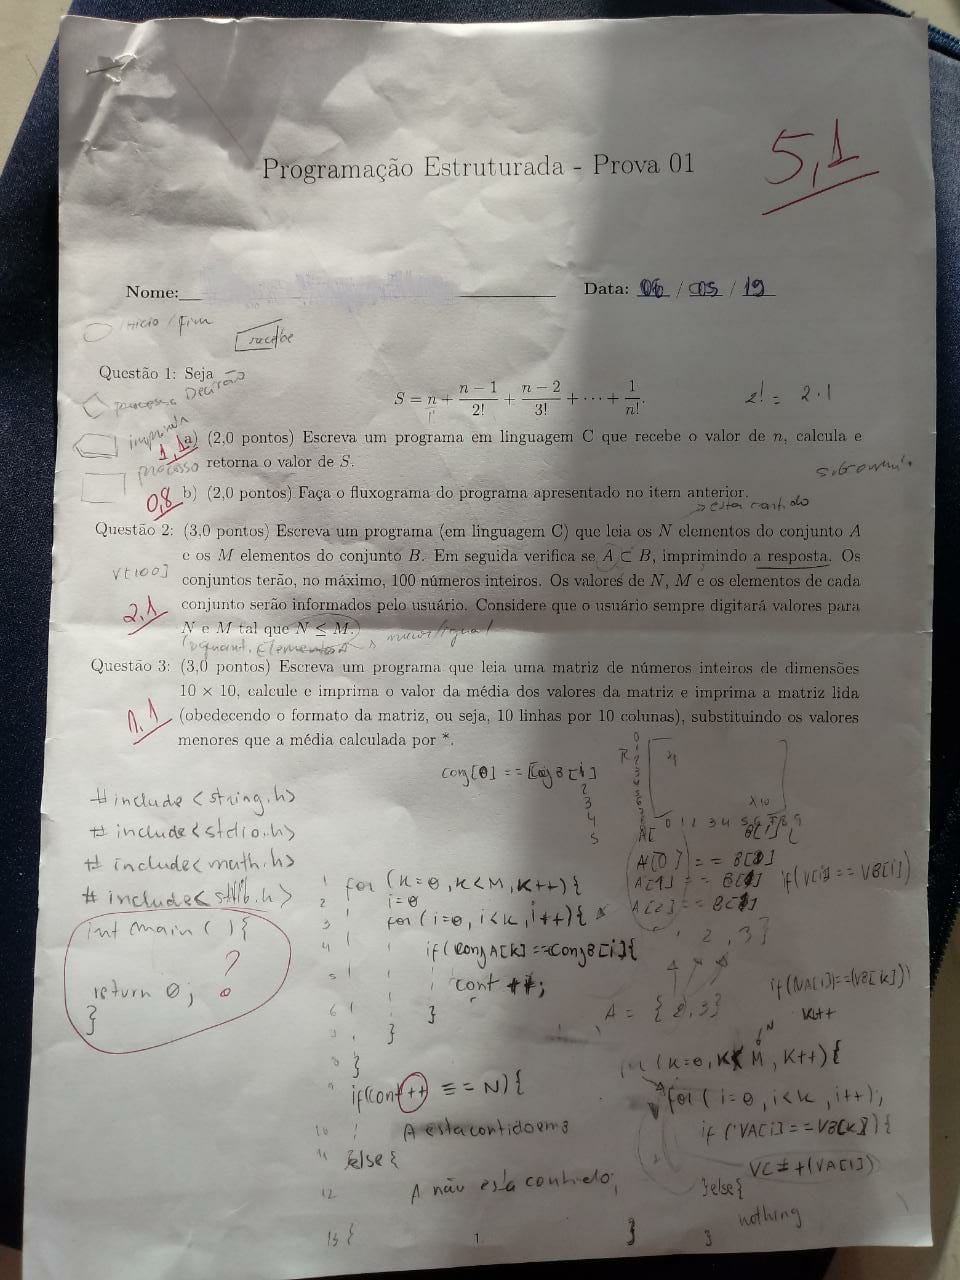 Programação Estruturada - Prova 01
5,1
Nome:
Data: 06 / 05 / 19
inicio / fim
recebe
Questão 1: Seja
Decisão
processo
S = n/1! + (n − 1)/2! + (n − 2)/3! + ⋯ + 1/n!.
2! = 2.1
imprimir
1,1
a) (2,0 pontos) Escreva um programa em linguagem C que recebe o valor de n, calcula e
processo
retorna o valor de S.
0,8
b) (2,0 pontos) Faça o fluxograma do programa apresentado no item anterior.
está contido
Questão 2: (3,0 pontos) Escreva um programa (em linguagem C) que leia os N elementos do conjunto A
e os M elementos do conjunto B. Em seguida verifica se A ⊂ B, imprimindo a resposta. Os
V[100]
conjuntos terão, no máximo, 100 números inteiros. Os valores de N, M e os elementos de cada
2,1
conjunto serão informados pelo usuário. Considere que o usuário sempre digitará valores para
N e M tal que N ≤ M.
menor/igual
quant. Elementos A
Questão 3: (3,0 pontos) Escreva um programa que leia uma matriz de números inteiros de dimensões
10 × 10, calcule e imprima o valor da média dos valores da matriz e imprima a matriz lida
1,1
(obedecendo o formato da matriz, ou seja, 10 linhas por 10 colunas), substituindo os valores
menores que a média calculada por *.
conj[0] == [conjB[i]
2
3
4
5
0 1 2 3 4 5 6 7 8 9
#include <string.h>
#include <stdio.h>
#include <math.h>
#include <stdlib.h>
int main () {
?
return 0;
}
A[0] == B[1]
A[1] == B[1]
A[2] == B[1]
if (VC[i] == VB[i])
, 2, 3}
A = {2,3}
if (NA[i]==(VB[k]))
K++
1 for (K=0, K<M, K++) {
2 i=0
3 for (i=0, i<k, i++) {
4 if (ConjA[k] == ConjB[i] {
5 cont ++;
6 }
7 }
8 }
9 if (cont++ == N) {
10 A esta contido em B
11 }else {
12 A não esta contido;
13 }
(K=0, K< M, K++) {
for (i=0, i<k, i++);
if (VA[i] == VB[k]) {
VC =+(VA[i])
}else{
nothing
}
}
1